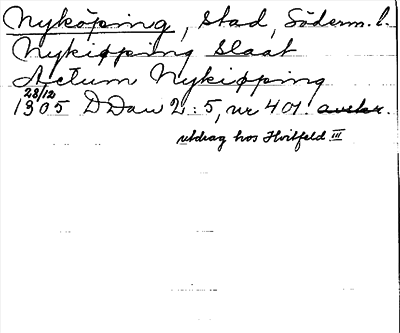 Nyköping, Stad, Söderm. l.
Nykiøpping Slaat
Actum Nykiøpping
28/12
1305 DDan 2:5, nr 401. avskr.
utdrag hos Hvitfeld III